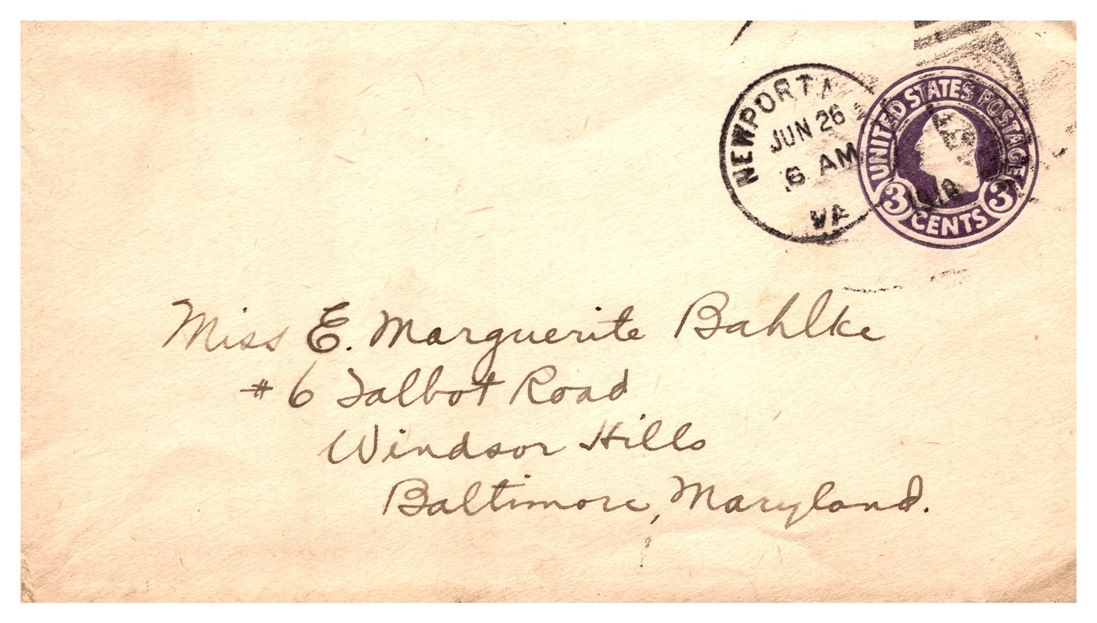 NEWPORT N
JUN 26
6 AM
VA
1918
UNITED STATES POSTAGE
3 CENTS 3
Miss E. Marguerite Bahlke
# 6 Talbot Road
Windsor Hills
Baltimore, Maryland.